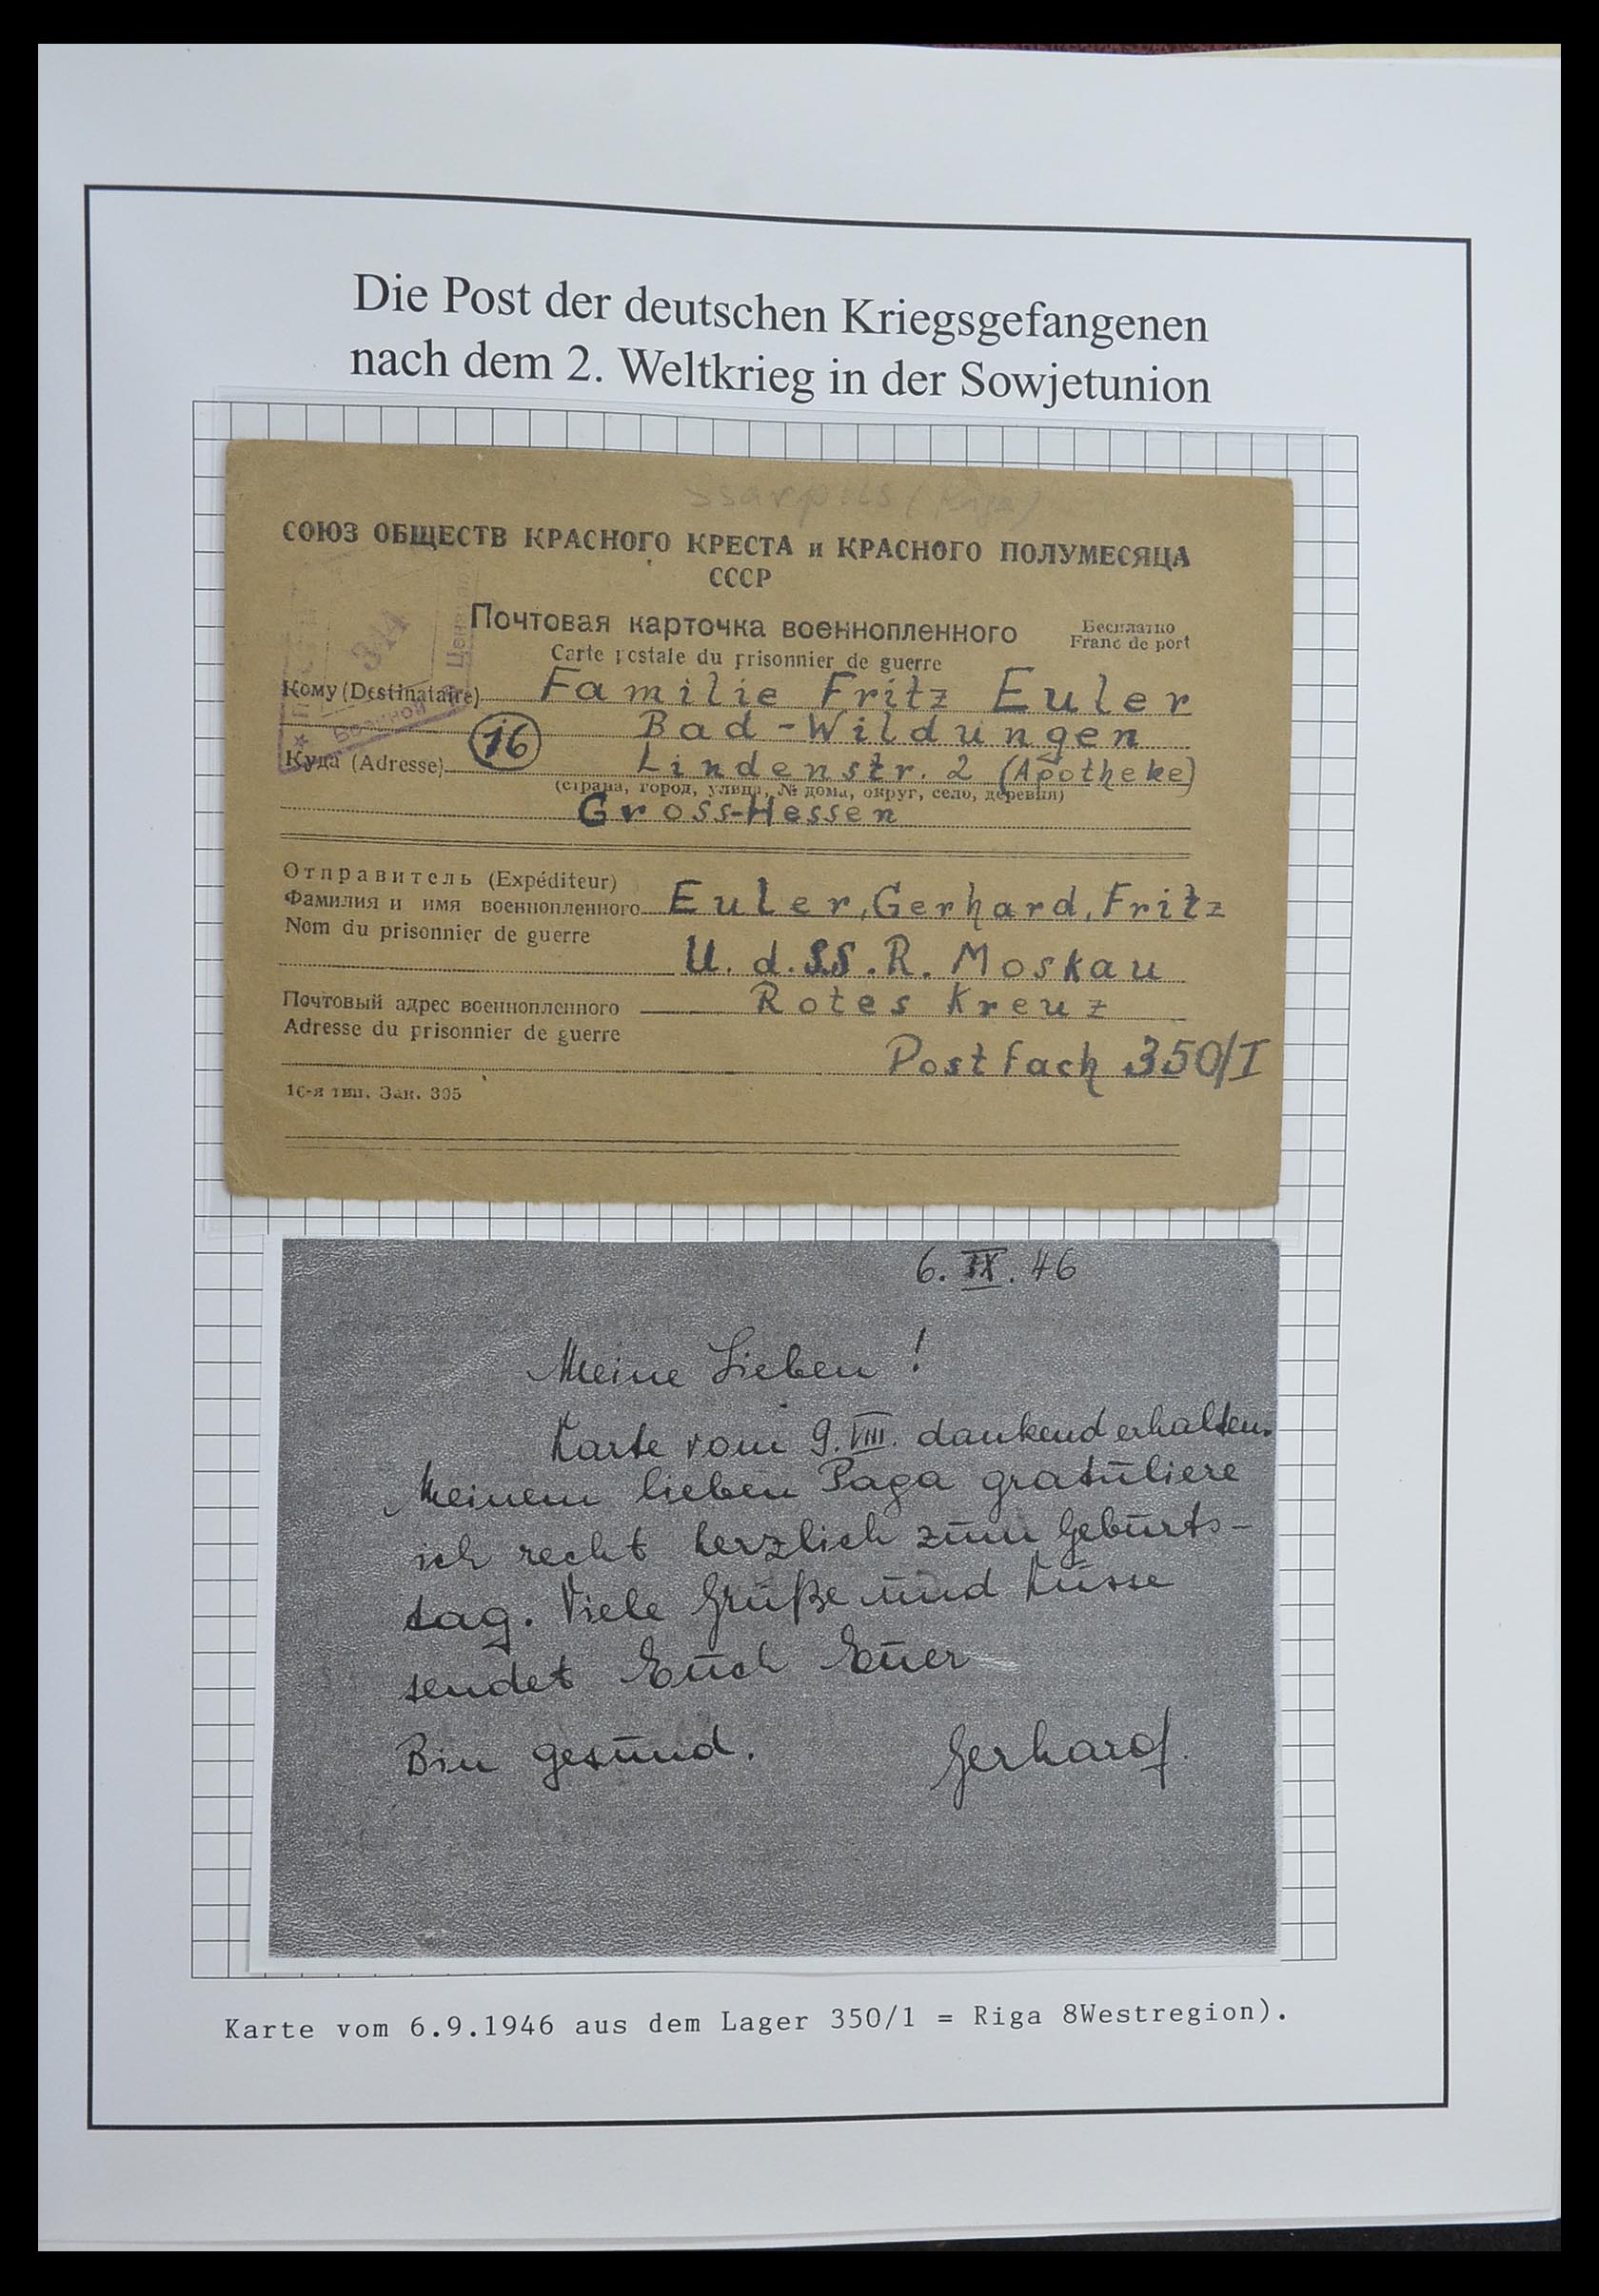 Die Post der deutschen Kriegsgefangenen
nach dem 2. Weltkrieg in der Sowjetunion
(Riga)
СОЮЗ ОБЩЕСТВ КРАСНОГО КРЕСТА и КРАСНОГО ПОЛУМЕСЯЦА
СССР
Почтовая карточка военнопленного
Бесплатно
Franc de port
Carte postale du prisonnier de guerre
Кому (Destinataire) Familie Fritz Euler
16 Bad-Wildungen
Куда (Adresse) Lindenstr. 2 (Apotheke)
(страна, город, улица, № дома, округ, село, деревня)
Gross-Hessen
Отправитель (Expéditeur)
Фамилия и имя военнопленного Euler, Gerhard, Fritz
Nom du prisonnier de guerre
U. d. SS. R. Moskau
Почтовый адрес военнопленного Rotes Kreuz
Adresse du prisonnier de guerre
Postfach 350/I
16-я тип. Зак. 305
6. IX. 46
Meine Lieben!
Karte vom 9. VIII. dankend erhalten.
Meinem lieben Papa gratuliere
ich recht herzlich zum Geburts-
tag. Viele Grüße und Küsse
sendet Euch Euer
Bin gesund. Gerhard.
Karte vom 6.9.1946 aus dem Lager 350/1 = Riga 8Westregion).